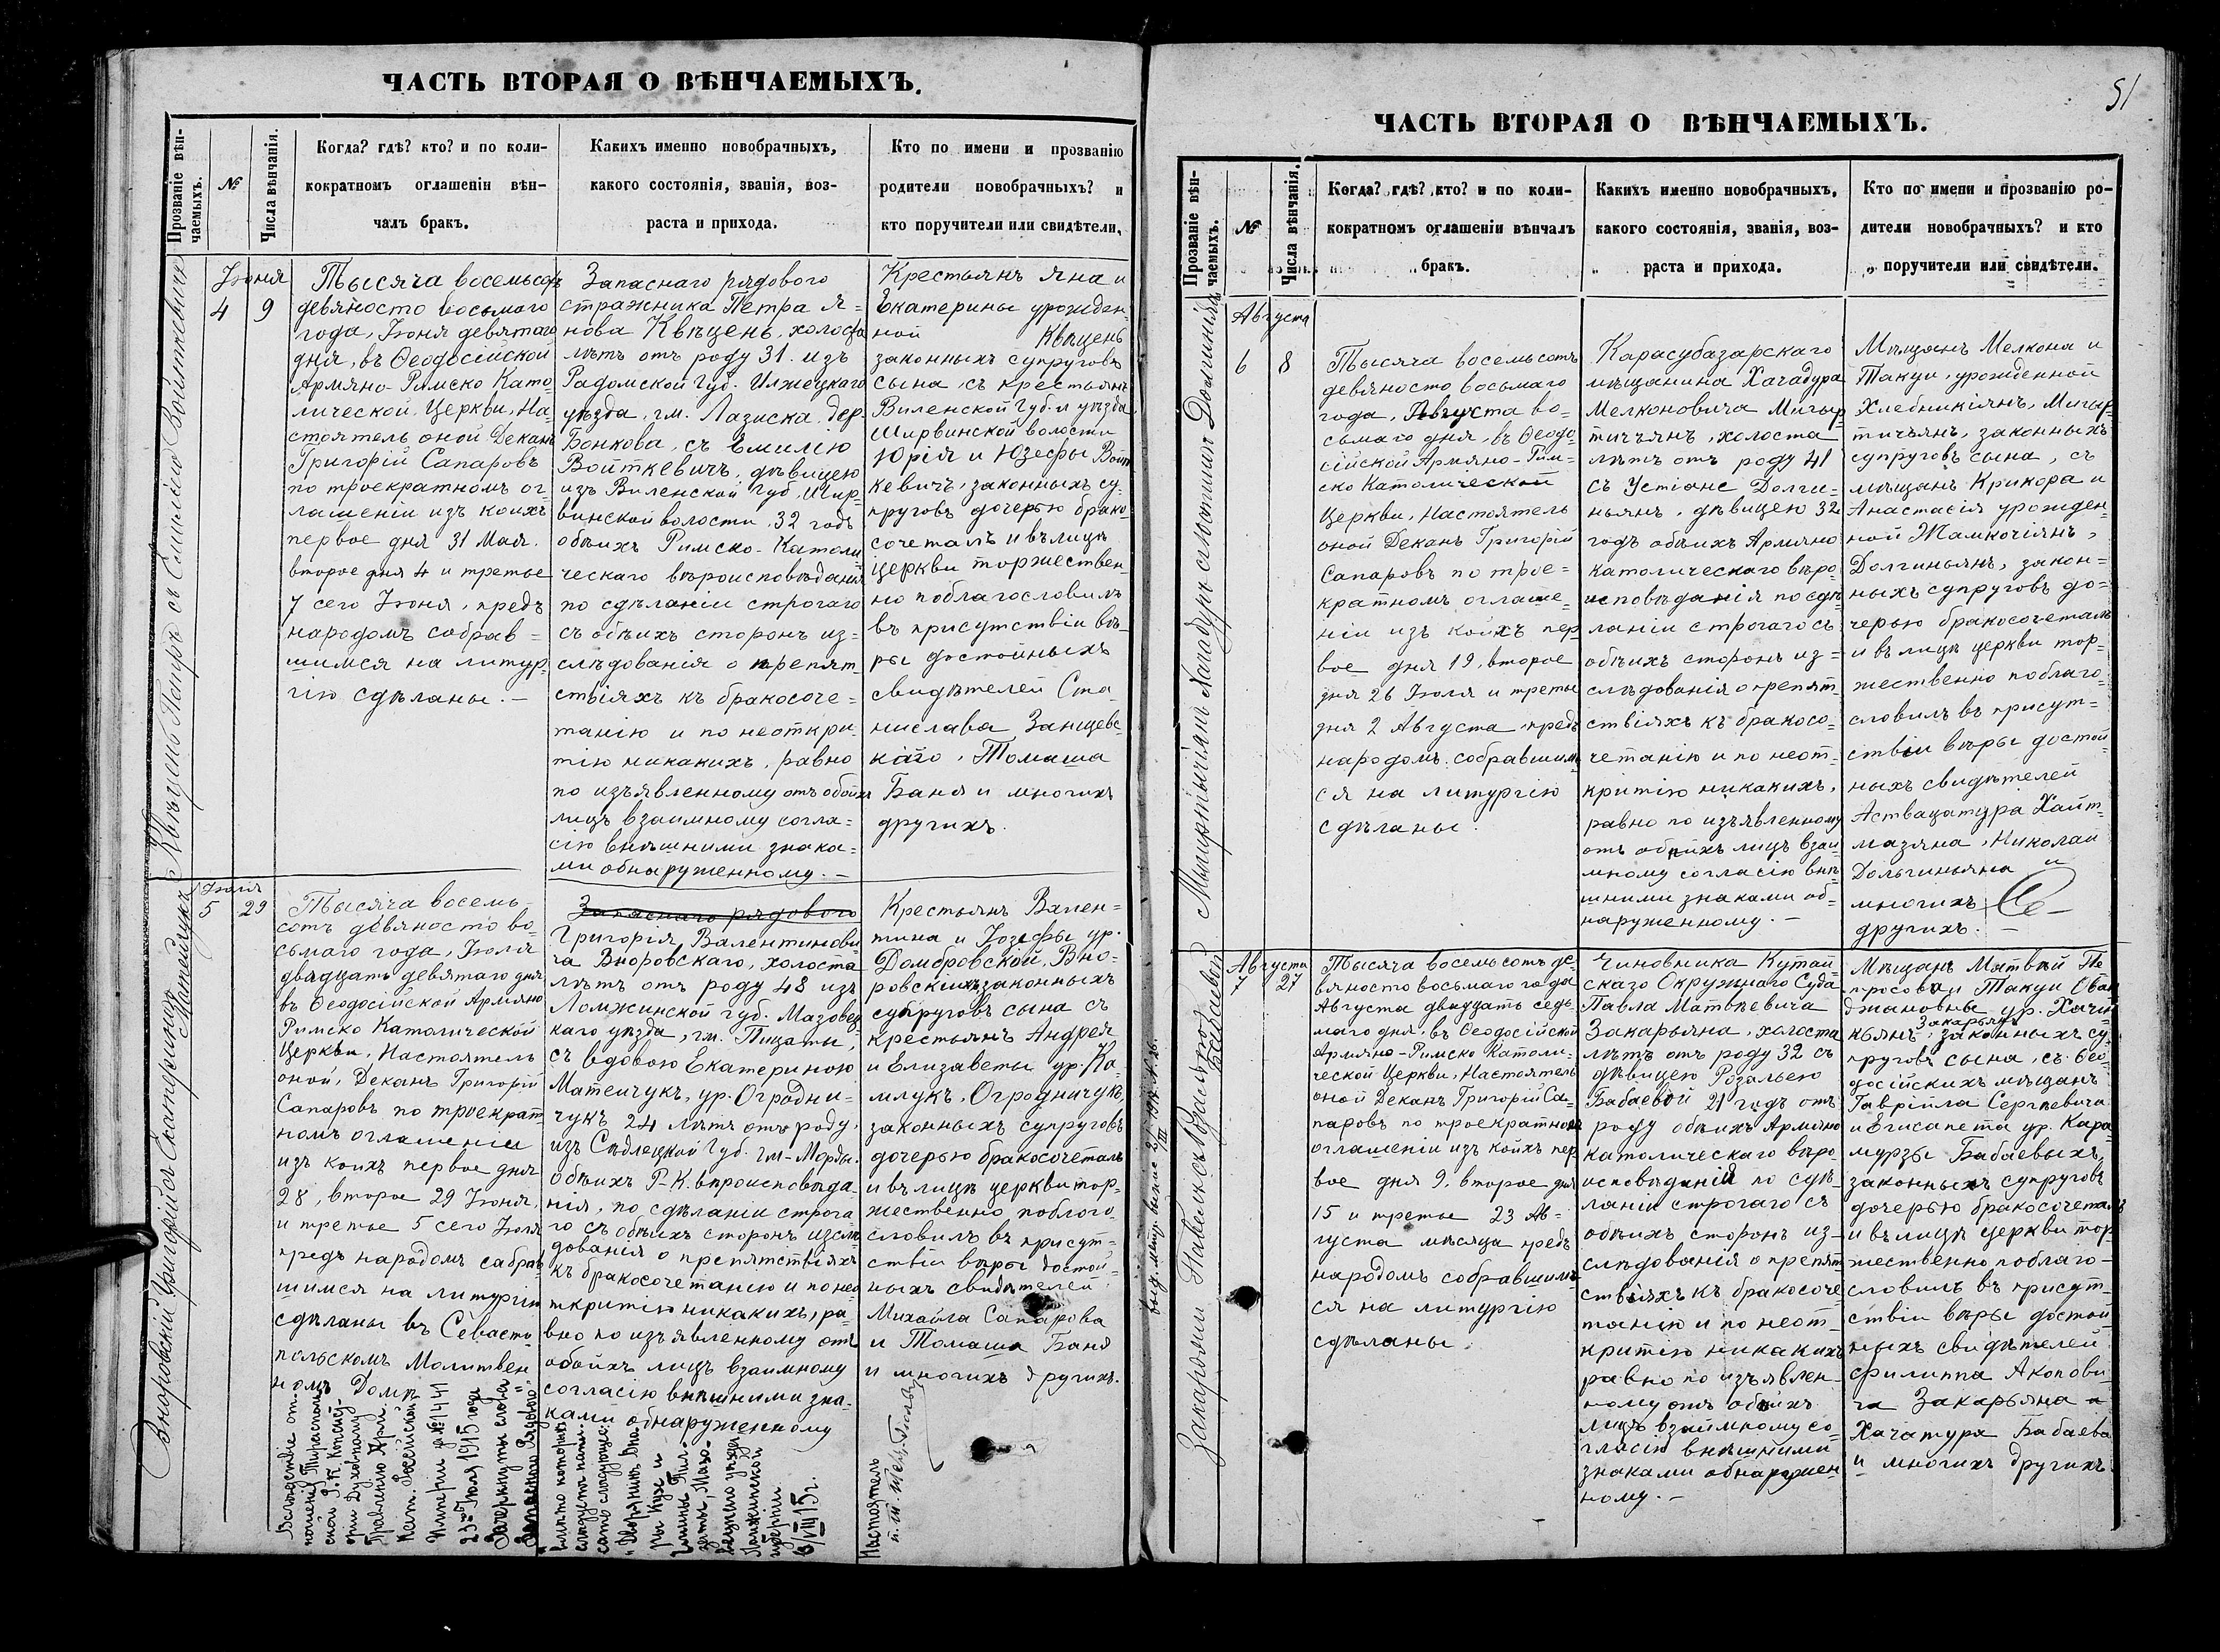 ЧАСТЬ ВТОРАЯ О ВѢНЧАЕМЫХЪ.
Прозваніе вѣн-
чаемыхъ.
№
Числа вѣнчанія.
Когда? гдѣ? кто? и по коли-
кократномъ оглашеніи вѣн-
чалъ бракъ.
Какихъ именно новобрачныхъ,
какого состоянія, званія, воз-
раста и прихода.
Кто по имени и прозванію
родители новобрачныхъ? и
кто поручители или свидѣтели.
Квѣцень Петръ съ Емилію Войткевичъ
Іюня
4 9
Тысяча восемьсотъ
девяносто восьмого
года, Іюня девятаго
дня, въ Ѳеодосійской
Армяно-Римско Като-
лической Церкви, На-
стоятель оной Деканъ
Григорій Сапаровъ
по троекратномъ ог-
лашеніи изъ коихъ
первое дня 31 Мая.
второе дня 4 и третье
7 сего Іюня, предъ
народомъ собрав=
шимся на литур-
гію сдѣланы.—
Запаснаго рядового
стражника Петра Я=
нова Квѣцень, холоста
лѣтъ отъ роду 31. изъ
Радомской Губ. Илжецкаго
уѣзда, гм. Лазиска, дер.
Бонкова, съ Емилею
Войткевичъ, дѣвицею
изъ Виленской Губ. Шир-
винской волости 32 годъ
обѣихъ Римско-Католи
ческаго вѣроисповѣданія
по сдѣланіи строгаго
съ обѣихъ сторонъ из=
слѣдованія о препят
ствіяхъ къ бракосоче=
танію и по неоткри-
тію никакихъ, равно
по изъявленному отъ обоихъ
лицъ взаимному согла=
сію внѣшними знака=
ми обнаруженному.—
Крестьянъ Яна и
Екатерины урожден
ной Квѣцень
законныхъ супруговъ
сына, съ крестьянъ
Виленской Губ. и уѣзда
Ширвинской волости
Юрія и Юзефы Войт
кевичъ, законныхъ су-
пруговъ дочерью брако-
сочеталъ и въ лицѣ
церкви торжествен-
но поблагословилъ
въ присутствіи вѣ-
ры достойныхъ
свидѣтелей Ста-
нислава Занцевс-
каго, Томаша
Баня и многихъ
другихъ.
Вноровскій Григорій съ Екатериною Матейчукъ
Іюля
5 29
Тысяча восемь-
сотъ девяносто во-
сьмаго года, Іюля
двадцать девятаго дня
въ Ѳеодосійской Армяно
Римско Католической
Церкви, Настоятель
оной, Деканъ Григорій
Сапаровъ по троекрат-
номъ оглашеніи
изъ коихъ первое дня
28, второе 29 Іюня,
и третье 5 сего Іюля
предъ народомъ сабрав-
шимся на литургію
сдѣланы въ Севасто
польскомъ Молитвен
номъ Домѣ
Запаснаго рядового
Григорія Валентинови
ча Вноровскаго, холоста
лѣтъ отъ роду 48 изъ
Ломжинской Губ. Мазовец
каго уѣзда, гм. Пищаты,
съ вдовою Екатериною
Матейчукъ, ур. Огродни-
чукъ 24 лѣтъ отъ роду,
изъ Сѣдлецкой Губ. гм-Морды.
обѣихъ Р-К. вѣроисповѣда
нія, по сдѣланіи строга
го съ обѣихъ сторонъ изслѣ
дованія о препятствіяхъ
къ бракосочетанію и по нео
ткритію никакихъ, ра=
вно по изъявленному отъ
обойхъ лицъ взаимному
согласію внѣшними зна-
ками обнаруженному
Крестьянъ Вален=
тина и Іозефы ур.
Домбровской, Вно-
ровскихъ законныхъ
супруговъ сына съ
крестьянъ Андрея
и Елизаветы ур.
Огродничукъ,
законныхъ супруговъ
дочерью бракосочеталъ
и въ лицѣ церкви тор-
жественно поблого-
словилъ въ присут-
ствіи вѣры достой-
ныхъ свидѣтелей
Михаила Сапарова
и Томаша Баня
и многихъ другихъ.
Вслѣдствіе от-
ношенія Тирасполь
ской Р.К. Консист-
оріи Духовному
Правленію Арм.
Кат. Россійской
Имперіи за №1441
23го Іюля 1915 года
Зачеркнуты слова
"Запаснаго Рядового"
вмѣсто которыхъ
слѣдуетъ напи-
сать слѣдующее:
"Дворянинъ Вно-
уѣзда
Ломжинской
губерніи
6/VIII 15 г.
Настоятель
51
ЧАСТЬ ВТОРАЯ О ВѢНЧАЕМЫХЪ.
Прозваніе вѣн-
чаемыхъ.
№
Числа вѣнчанія.
Когда? гдѣ? кто? и по коли-
кократномъ оглашеніи вѣнчалъ
бракъ.
Какихъ именно новобрачныхъ,
какого состоянія, званія, воз-
раста и прихода.
Кто по имени и прозванію ро-
дители новобрачныхъ? и кто
поручители или свидѣтели.
Хачадуръ съ Устіаніи Долгиніянъ
Августа
6 8
Тысяча восемьсотъ
девяносто восьмаго
года, Августа во=
сьмаго дня, въ Ѳеодо-
сійской Армяно-Рим=
ско Католической
Церкви, Настоятель
оной Деканъ Григорій
Сапаровъ по трое=
кратномъ оглаше=
ніи изъ койхъ пер
вое дня 19, второе
дня 26 Іюля и третье
дня 2 Августа предъ
народомъ собравшим
ся на литургію
сдѣланы.
Карасубазарскаго
мѣщанина Хачадура
Мелконовича Мигыр
тичъянъ, холоста
лѣтъ отъ роду 41
съ Устіане Долги=
ньянъ, дѣвицею 32
годъ обѣихъ Армяно
католическаго вѣро=
исповѣданія по сдѣ
ланіи строгаго съ
обѣихъ сторонъ из=
слѣдованія о препят
ствіяхъ къ бракосо=
четанію и по неот=
критію никакихъ,
равно по изъявленному
отъ обѣихъ лицъ взаи
мному согласію внѣ
шними знаками об=
наруженному.—
Мѣщанъ Мелкона и
Такуи, урожденной
Хлебникіянъ, Мигыр
тичьянъ, законныхъ
супруговъ сына, съ
мѣщанъ Крикора и
Анастасія урожден-
ной Жамкочіянъ,
Долгиньянъ, закон=
ныхъ супруговъ до=
черью бракосочеталъ
и въ лицѣ церкви тор-
жественно поблаго-
словилъ въ присут=
ствіи вѣры достой-
ныхъ свидѣтелей
Аствацатура Хайт-
мазяна, Николай
Дольгиньяна и
многихъ
другихъ.—
Закарьянъ Павелъ съ Розальею Бабаевой
Августа
7 27
Тысяча восемьсотъ де-
вяносто восьмаго года
Августа двадцать седь-
маго дня, въ Ѳеодосійской
Армяно-Римско Католи-
ческой Церкви, Настоятель
оной Деканъ Григорій Са-
паровъ по троекратномъ
оглашеніи изъ койхъ пер
вое дня 9, второе дня
15 и третье 23 Ав=
густа мѣсяца предъ
народомъ собравшим-
ся на литургію
сдѣланы.
Чиновника Кутай
сказо Окружнаго Суда
Павла Матвѣевича
Закарьяна, холоста
лѣтъ отъ роду 32 съ
дѣвицею Розальею
Бабаевой 21 годъ отъ
роду обѣихъ Армяно
католическаго вѣро-
исповѣданія по сдѣ-
ланіи строгаго съ
обѣихъ сторонъ из-
слѣдованія о препят
ствіяхъ къ бракосоче
танію и по неот-
критію никакихъ
равно по изъявлен-
ному отъ обѣихъ
лицъ взаимному со-
гласію внѣшними
знаками обнаружен
ному.—
Мѣщанъ Матвѣй Пе
тросова и Такуи Ован
джановны ур. Хачи
кьянъ, Закарьянъ законныхъ су
пруговъ сына, съ Ѳео-
досійскихъ мѣщанъ
Гавріила Сергѣевича
и Егисапета ур. Кара-
мурзы Бабаевыхъ,
законныхъ супруговъ
дочерью бракосочеталъ
и въ лицѣ церкви тор
жественно поблаго-
словилъ въ присут-
ствіи вѣры достой
ныхъ свидѣтелей
Филиппа Акопови-
ча Закарьяна и
Хачатура Бабаева
и многихъ другихъ.